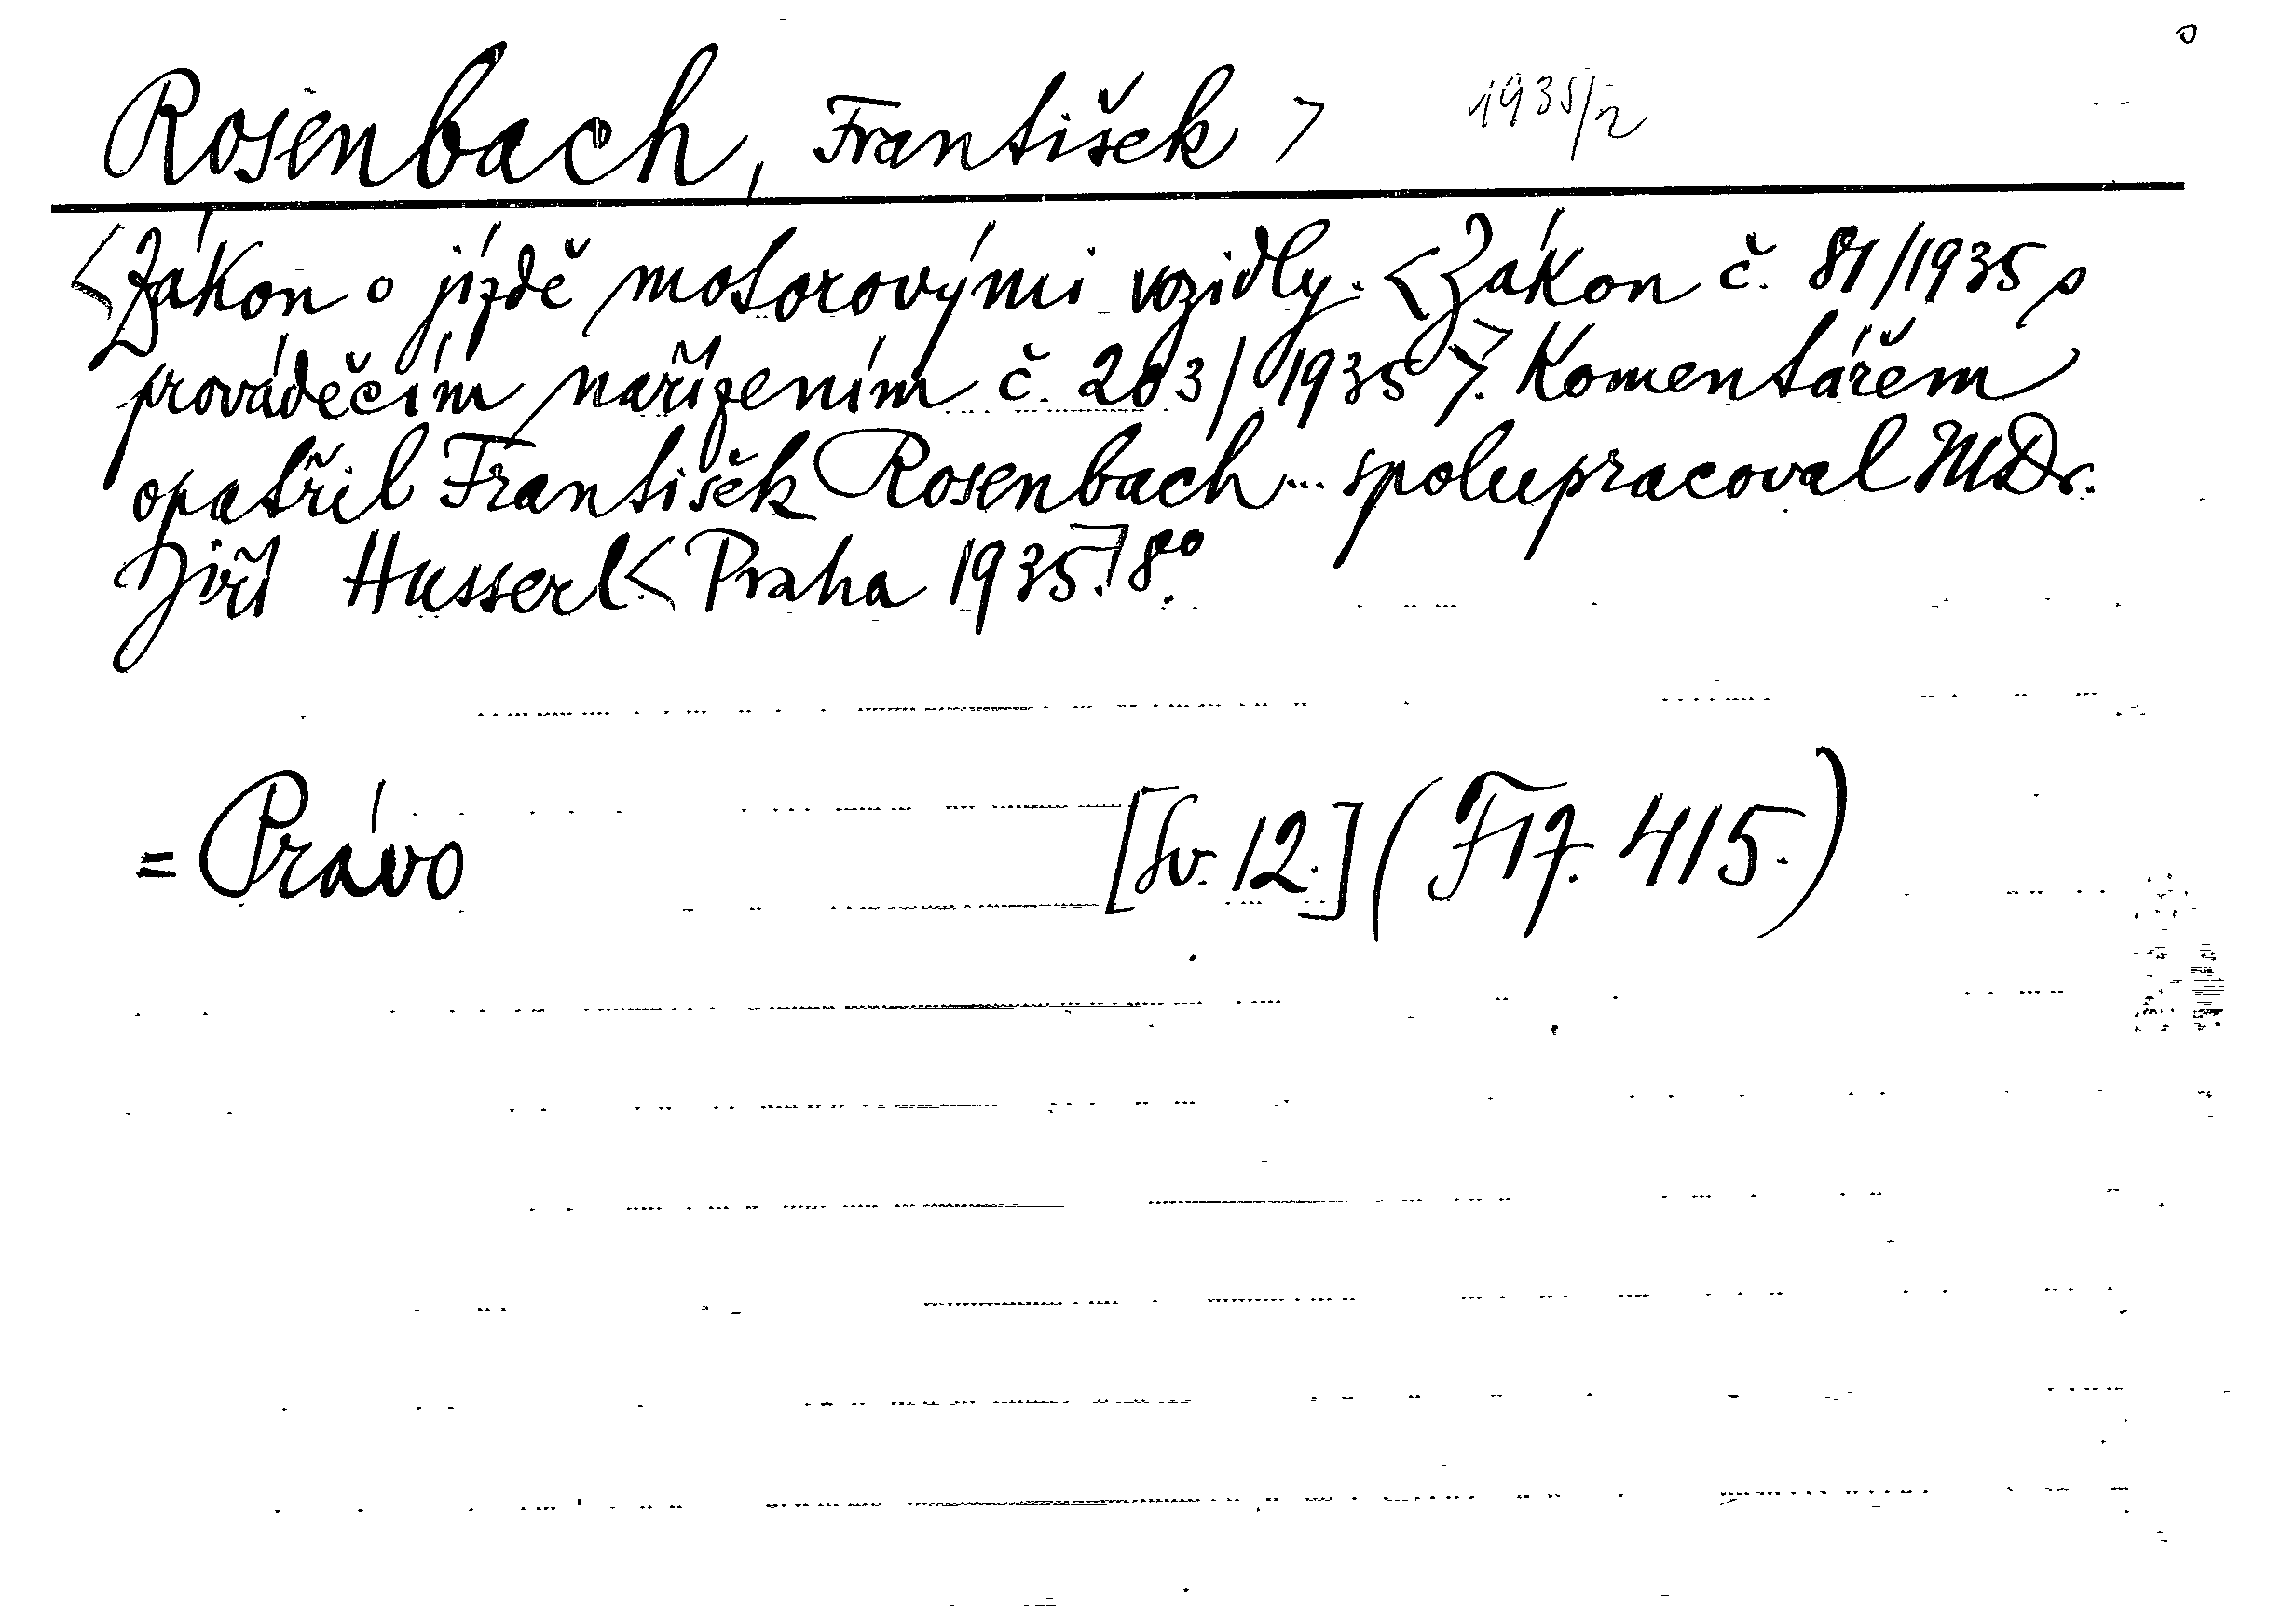 Rosenbach, František > 1935/2
<Zákon o jízdě motorovými vozidly. <Zákon č. 81/1935 s
prováděcím nařízením č. 203/1935>. Komentářem
opatřil František Rosenbach... spolupracoval MDr.
Jiří Husserl.< Praha 1935.] 8°.
= Právo [Sv. 12.] (F17. 415.)